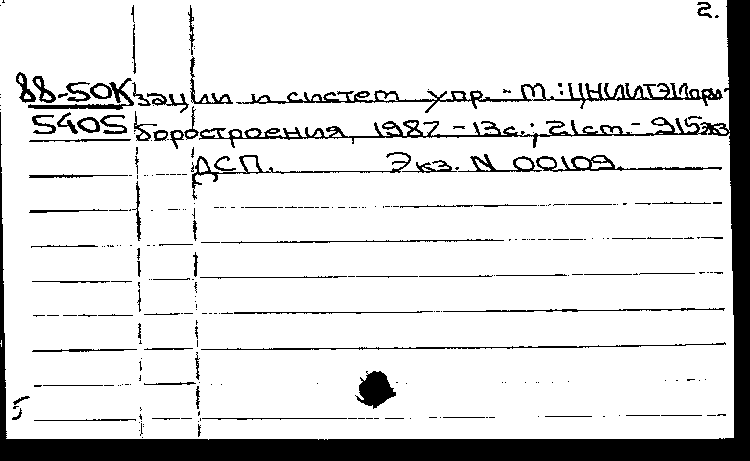 2.
88-50К зации и систем упр. - М.: ЦНИИТЭИпри-
5405 боростроения, 1987. - 13с.; 21см. - 915экз
ДСП. Экз. N 00109.
5